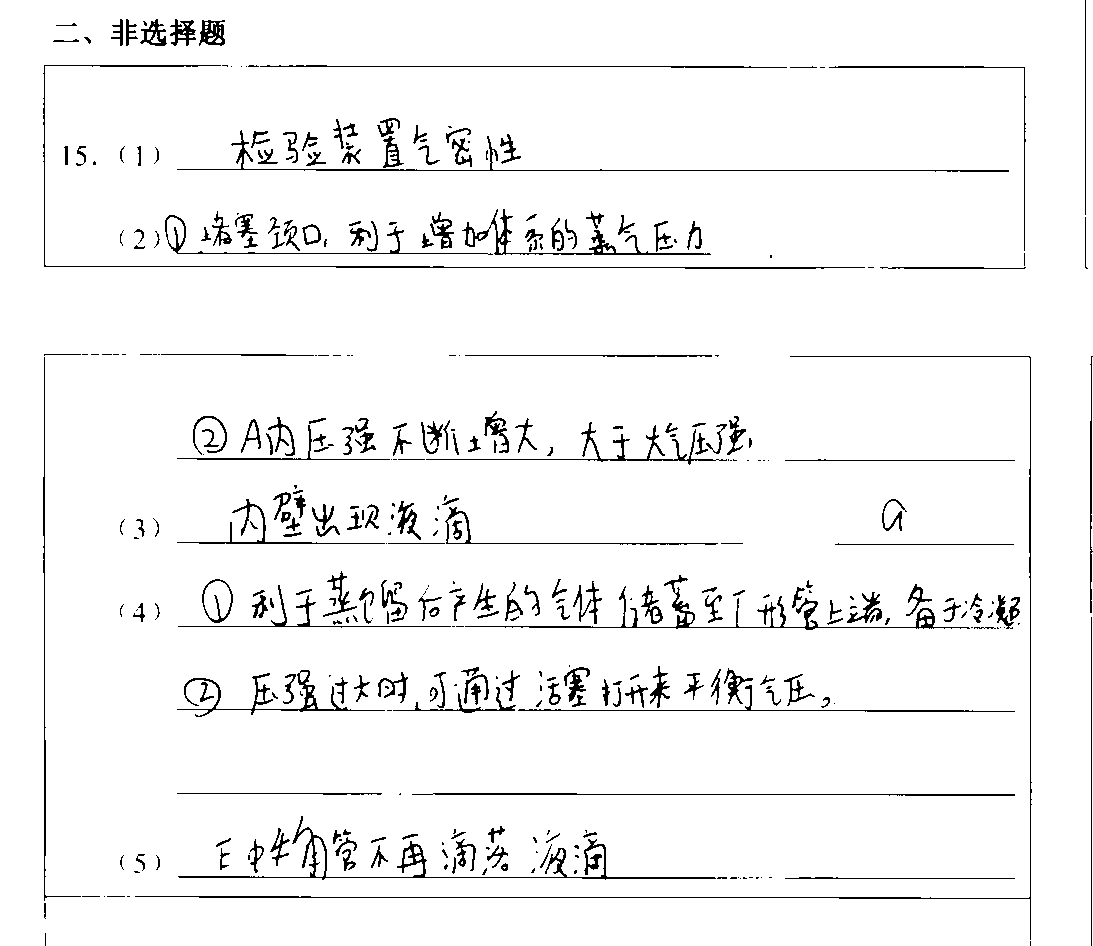 二、非选择题
15.(1) 检验装置气密性
(2)①堵塞颈口,利于增加体系的蒸气压力
②A内压强不断增大,大于大气压强
(3) 内壁出现液滴 a
(4) ①利于蒸馏后产生的气体储蓄至T形管上端,备于冷凝
②压强过大时,可通过活塞打开来平衡气压。
(5) E中牛角管不再滴落液滴